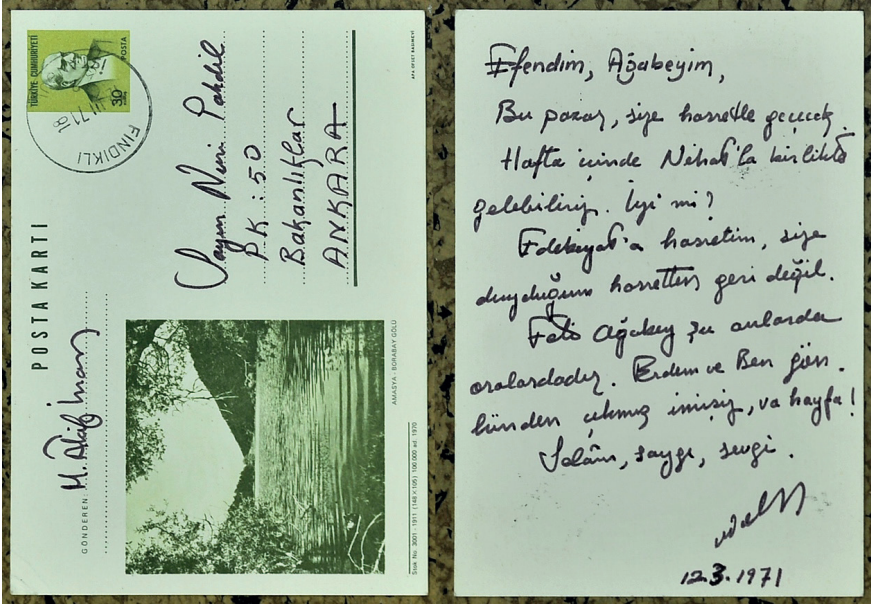 TÜRKİYE CUMHURİYETİ
POSTA
30
FINDIKLI
18
POSTA KARTI
Sayın Nuri Pakdil
P.K: 50
Bakanlıklar
ANKARA
GÖNDEREN: M. Akif İnan
AMASYA - BORABAY GÖLÜ
Stok No. 3001 - 1911 (148 x 105) 100.000 ad. 1970
APA OFSET BASIMEVİ
Efendim, Ağabeyim,
Bu pazar, size hasretle geçecek.
Hafta içinde Nihat'la birlikte
gelebiliriz. İyi mi?
Edebiyat'a hasretim, size
duyduğum hasretten geri değil.
Ağabey şu anlarda
oralardadır. Erdem ve Ben gön-
lünden çıkmış imişiz, va hayfa!
Selâm, saygı, sevgi.
12.3.1971